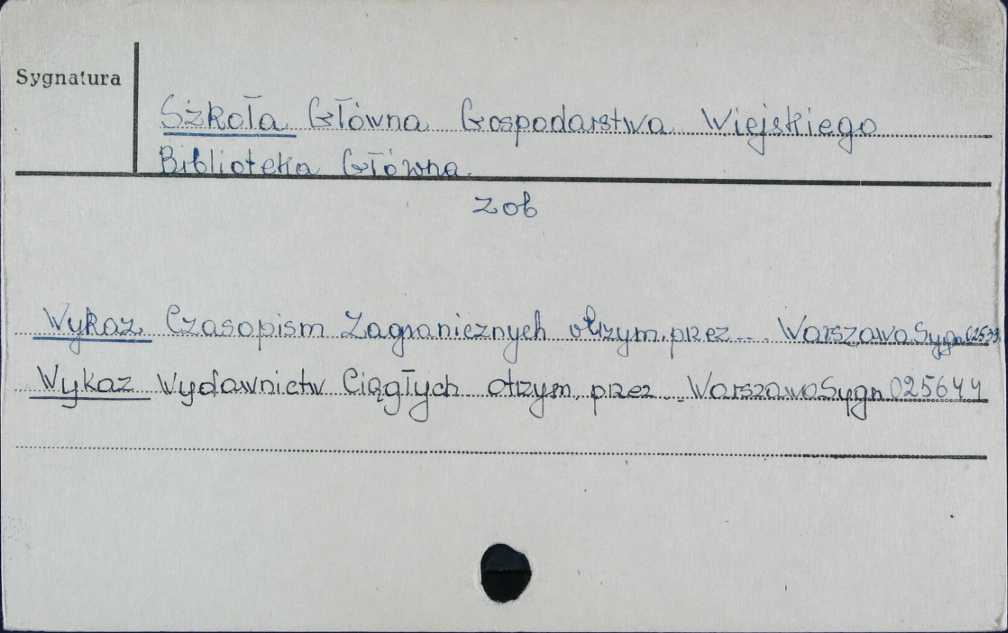 Sygnatura
Szkoła Główna Gospodarstwa Wiejskiego
Biblioteka Główna
zob
Wykaz Czasopism Zagranicznych otrzym. przez ... Warszawa Sygn
Wykaz Wydawnictw Ciągłych otrzym. przez ... Warszawa Sygn 025644